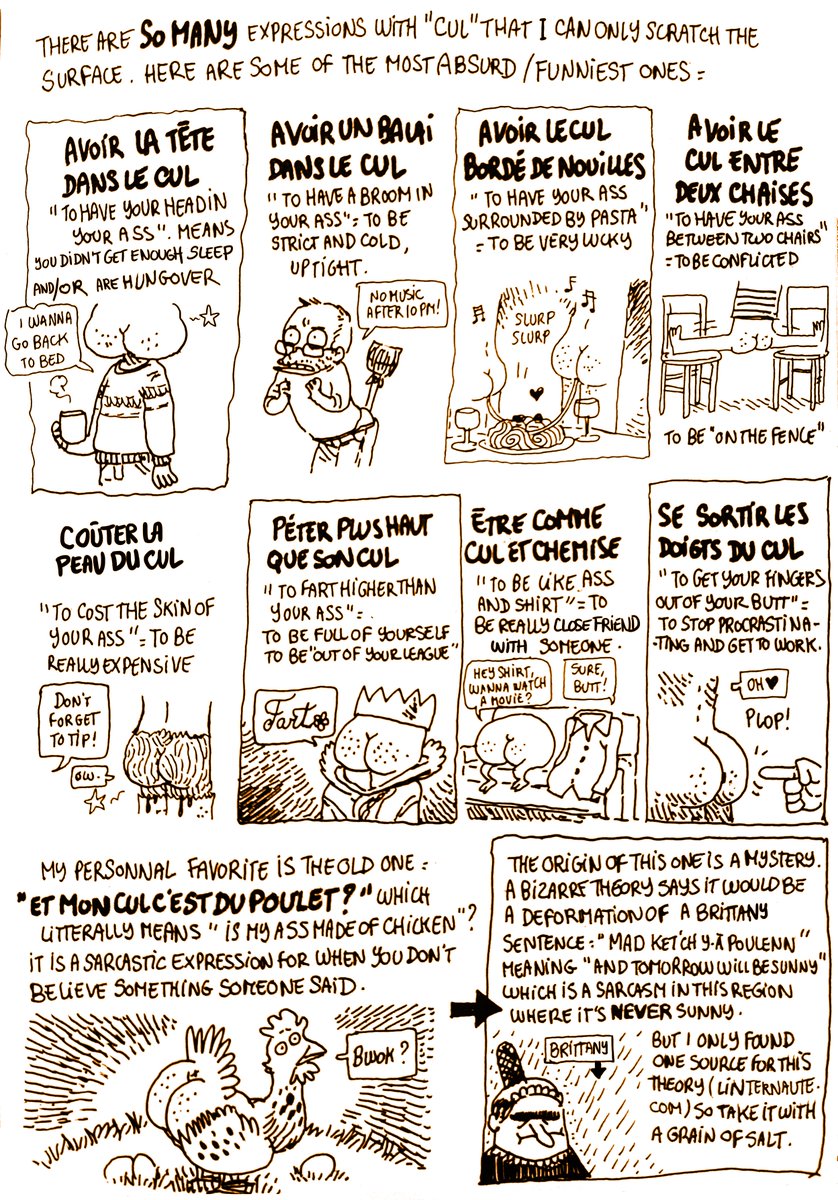 THERE ARE SO MANY EXPRESSIONS WITH "CUL" THAT I CAN ONLY SCRATCH THE
SURFACE. HERE ARE SOME OF THE MOST ABSURD / FUNNIEST ONES =
AVOIR LA TÊTE
DANS LE CUL
"TO HAVE YOUR HEAD IN
YOUR ASS". MEANS
YOU DIDN'T GET ENOUGH SLEEP
AND/OR ARE HUNGOVER
I WANNA
GO BACK
TO BED
AVOIR UN BALAI
DANS LE CUL
"TO HAVE A BROOM IN
YOUR ASS" = TO BE
STRICT AND COLD,
UPTIGHT.
NO MUSIC
AFTER 10 PM!
AVOIR LE CUL
BORDÉ DE NOUILLES
"TO HAVE YOUR ASS
SURROUNDED BY PASTA"
= TO BE VERY LUCKY
SLURP
SLURP
AVOIR LE
CUL ENTRE
DEUX CHAISES
"TO HAVE YOUR ASS
BETWEEN TWO CHAIRS"
= TO BE CONFLICTED
TO BE "ON THE FENCE"
COÛTER LA
PEAU DU CUL
"TO COST THE SKIN OF
YOUR ASS" = TO BE
REALLY EXPENSIVE
DON'T
FORGET
TO TIP!
OW.
PÉTER PLUS HAUT
QUE SON CUL
"TO FART HIGHER THAN
YOUR ASS" =
TO BE FULL OF YOURSELF
TO BE "OUT OF YOUR LEAGUE"
Fart
ÊTRE COMME
CUL ET CHEMISE
"TO BE LIKE ASS
AND SHIRT" = TO
BE REALLY CLOSE FRIEND
WITH SOMEONE.
HEY SHIRT,
WANNA WATCH
A MOVIE?
SURE,
BUTT!
SE SORTIR LES
DOIGTS DU CUL
"TO GET YOUR FINGERS
OUT OF YOUR BUTT" =
TO STOP PROCRASTINA-
-TING AND GET TO WORK.
OH ♥
PLOP!
MY PERSONNAL FAVORITE IS THE OLD ONE =
"ET MON CUL C'EST DU POULET?" WHICH
LITTERALLY MEANS "IS MY ASS MADE OF CHICKEN"?
IT IS A SARCASTIC EXPRESSION FOR WHEN YOU DON'T
BELIEVE SOMETHING SOMEONE SAID.
BWOK?
THE ORIGIN OF THIS ONE IS A MYSTERY.
A BIZARRE THEORY SAYS IT WOULD BE
A DEFORMATION OF A BRITTANY
SENTENCE: "MAD KETCH Y-A POULENN"
MEANING "AND TOMORROW WILL BE SUNNY"
WHICH IS A SARCASM IN THIS REGION
WHERE IT'S NEVER SUNNY.
BRITTANY
BUT I ONLY FOUND
ONE SOURCE FOR THIS
THEORY (LINTERNAUTE.
COM) SO TAKE IT WITH
A GRAIN OF SALT.